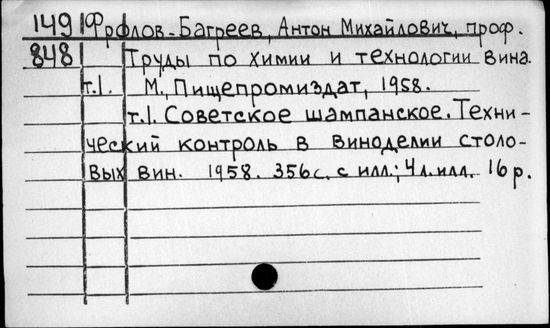 149 Фролов-Багреев, Антон Михайлович, проф.
848 Труды по химии и технологии вина.
т.1. М., Пищепромиздат, 1958.
т.1. Советское шампанское. Техни-
ческий контроль в виноделии столо-
вых вин. 1958. 356с. с илл.; 4 л. илл. 16 р.